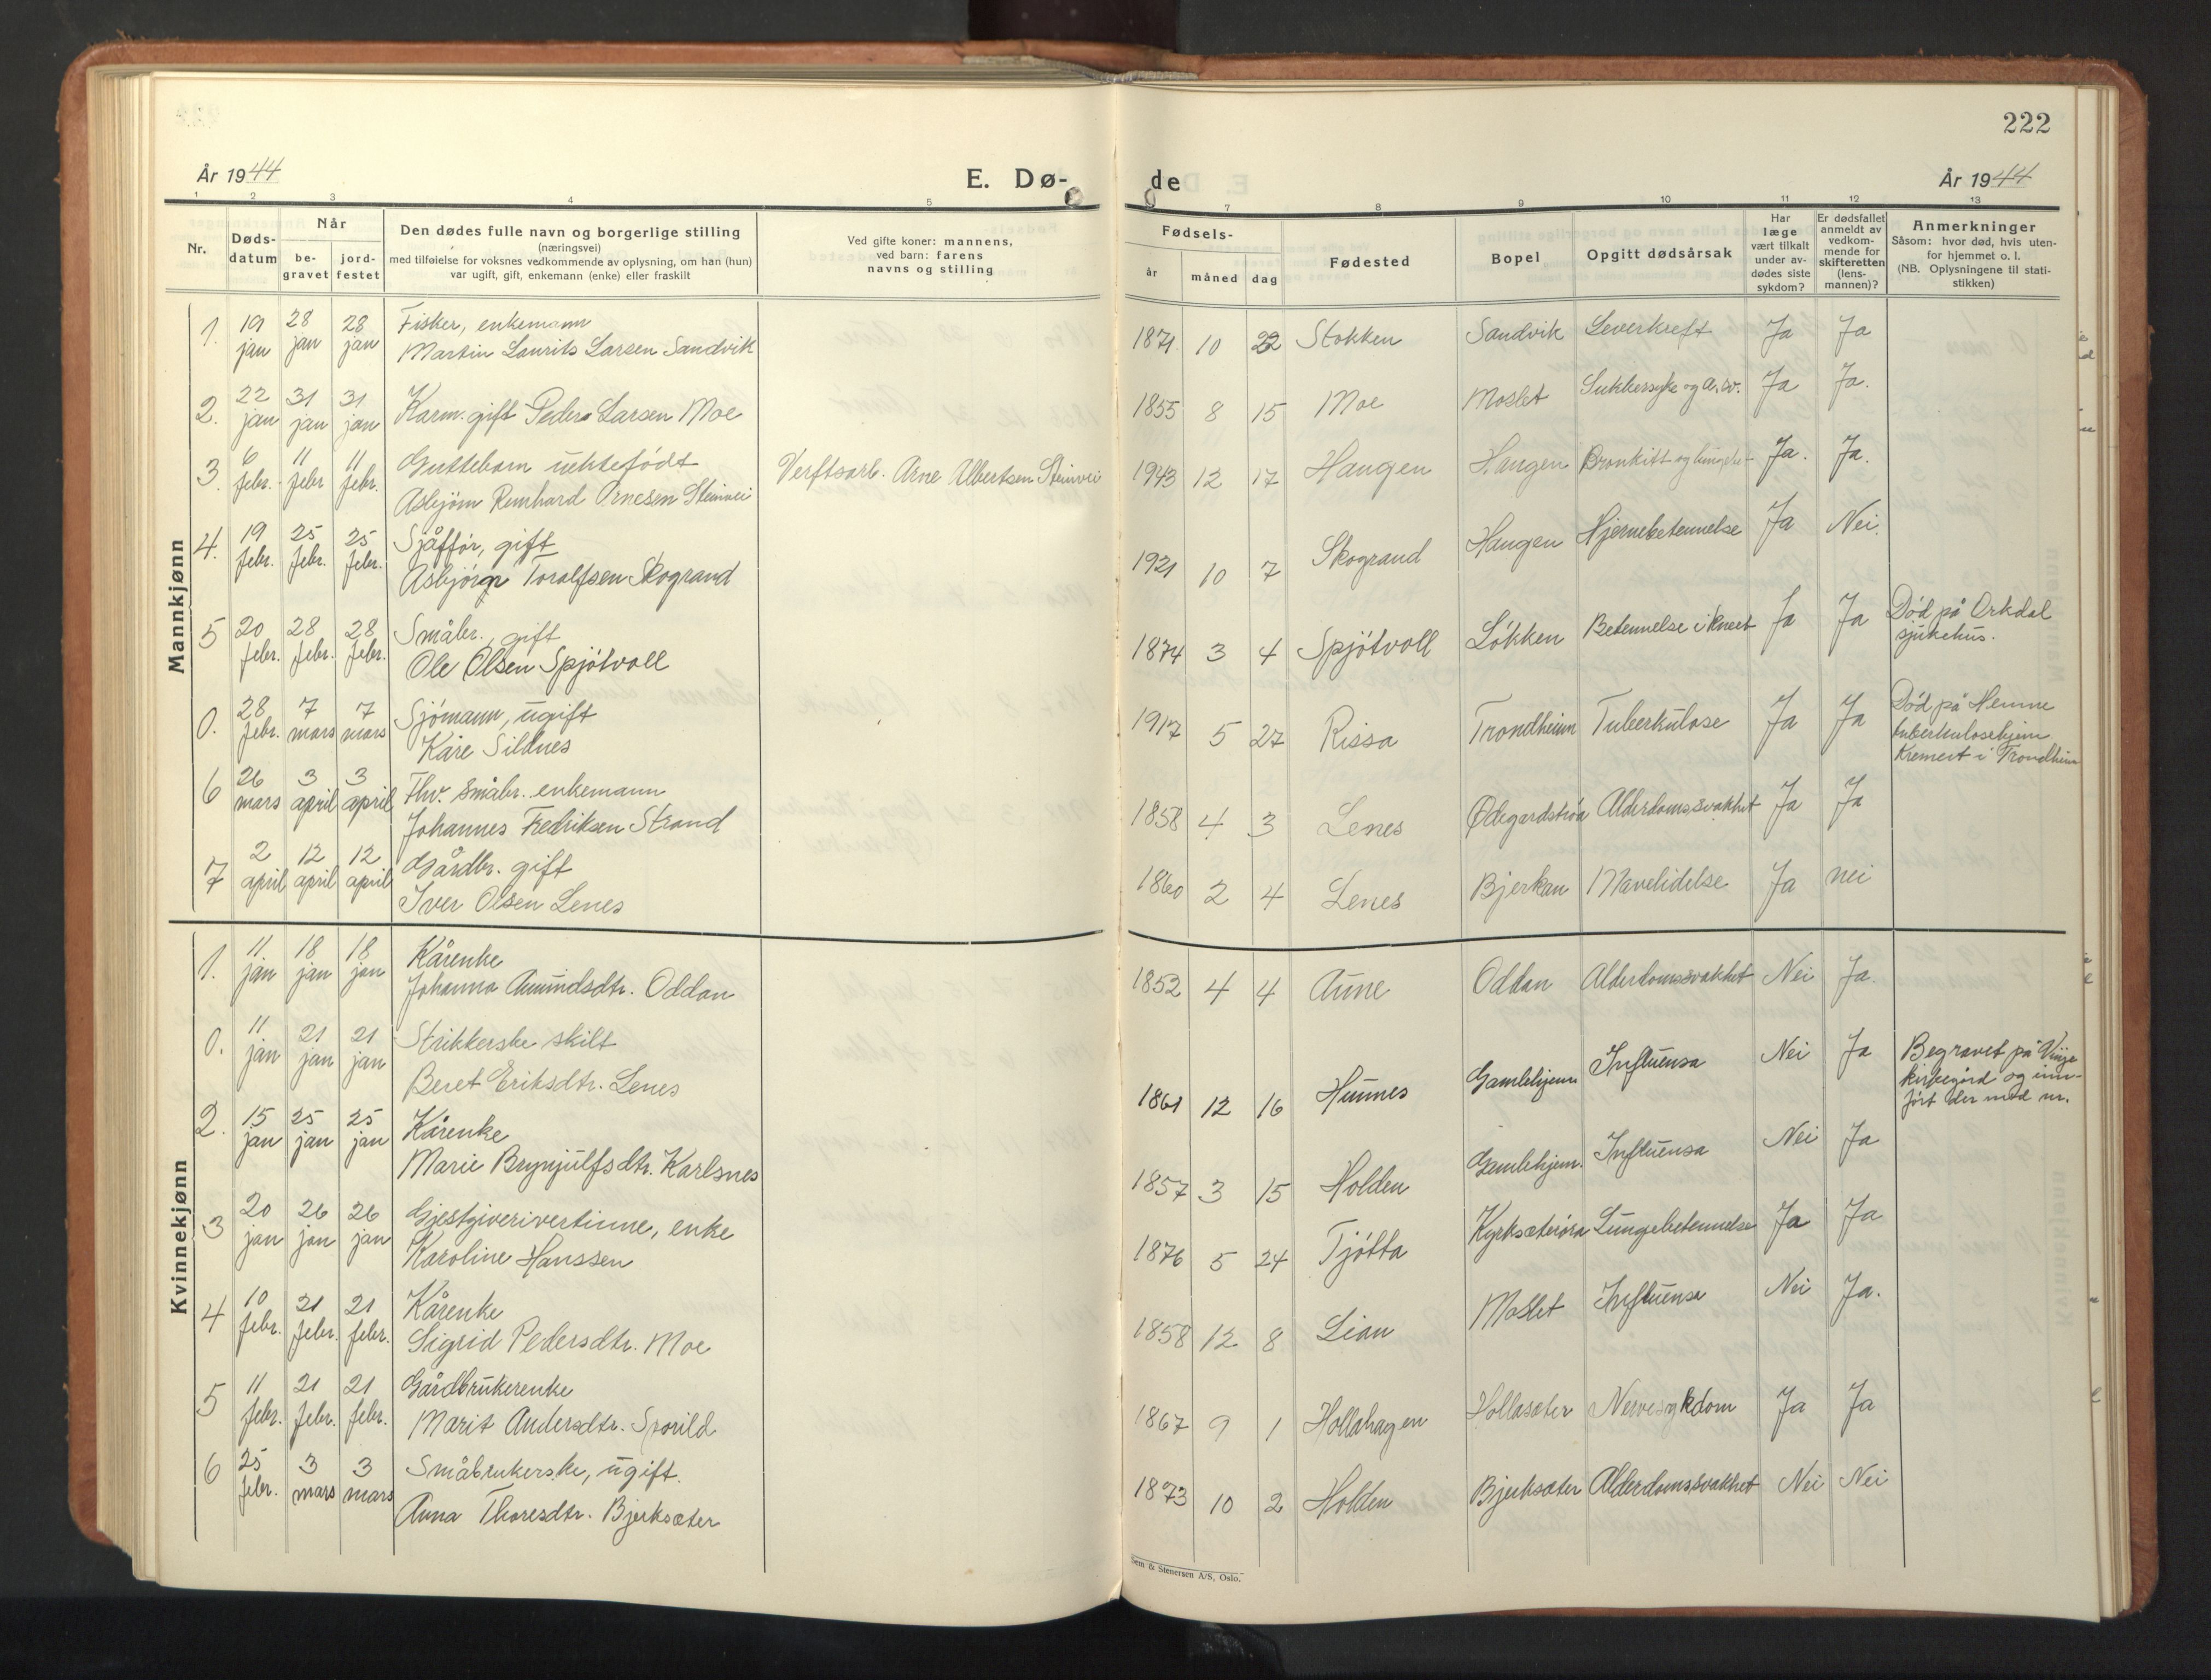 222
År 1944
E. Dø-
de
År 1944
1 2 3 4 5 7 8 9 10 11 12 13
Nr.
Døds-
datum
Når
be-
gravet
jord-
festet
Den dødes fulle navn og borgerlige stilling
(næringsvei)
med tilføielse for voksnes vedkommende av oplysning, om han (hun)
var ugift, gift, enkemann (enke) eller fraskilt
Ved gifte koner: mannens,
ved barn: farens
navns og stilling
Fødsels-
år
måned
dag
Fødested
Bopel
Opgitt dødsårsak
Har
læge
vært tilkalt
under av-
dødes siste
sykdom?
Er dødsfallet
anmeldt av
vedkom-
mende for
skifteretten
(lens-
mannen)?
Anmerkninger
Såsom: hvor død, hvis uten-
for hjemmet o. l.
(NB. Oplysningene til stati-
stikken)
Mannkjønn
1. 19 jan 28 jan 28 jan Fisker, enkemann
Martin Laurits Larsen Sandvik
1871 10 22 Stokken Sandvik Leverkreft Ja Ja
2. 22 jan 31 jan 31 jan Karm. gift Peder Larsen Moe
1855 8 15 Moe Moslet Sukkersyke og a.sv. Ja Ja.
3. 6 febr. 11 febr 11 febr. Guttebarn uektefødt
Asbjørn Reinhard Arnesen Steinvei
Verftsarb. Arne Albertsen Steinvei
1943 12 17 Haugen Haugen Bronkitt og Ja. Ja.
4. 19 febr. 25 febr. 25 febr. Sjåffør, gift
Asbjørn Toralfsen Skogrand
1921 10 7 Skogrand Haugen Hjernebetennelse Ja Nei.
5 20 febr. 28 febr. 28 febr. Småbr. gift
Ole Olsen Spjøtvoll
1874 3 4 Spjøtvoll Løkken Betennelse i kneet Ja Ja Død på Orkdal
sjukehus.
0. 28 febr. 7 mars 7 mars Sjømann, ugift
Kåre Sildnes
1917 5 27 Rissa Trondheim Tuberkulose Ja Ja Død på Hemne
tuberkulosehjem
Kremert i Trondheim
6 26 mars 3 april 3 april Fhv. småbr. enkemann
Johannes Fredriksen Strand
1858 4 3 Lenes Ødegardstrøa Alderdomssvakhet Ja Ja
7 2 april 12 april 12 april Gårdbr. gift
Iver Olsen Lenes
1860 2 4 Lenes Bjerkan Mavelidelse Ja nei
Kvinnekjønn
1. 11. jan 18 jan 18 jan Kårenke
Johanna Amundsdtr. Oddan
1852 4 4 Aune Oddan Alderdomssvakhet Nei Ja.
0. 11 jan 21 jan 21 jan Strikkerske skilt
Beret Eriksdtr. Lenes
1861 12 16 Hunnes Gamlehjem Influensa Nei Ja Begravet på Vinje
kirkegård og inn-
ført der med nr.
2. 15 jan 25 jan 25 jan Kårenke
Marie Brynjulfsdtr. Karlsnes
1857 3 15 Holden Gamlehjem. Influensa Nei Ja
3 20 jan 26 jan 26 jan Gjestgiverivertinne, enke
Karoline Hanssen
1876 5 24 Tjøtta Kyrksæterøra Lungebetennelse Ja Ja
4 10 febr. 21 febr. 21 febr. Kårenke
Sigrid Pedersdtr. Moe
1858 12 8 Lian Moslet Influensa Nei Ja.
5 11 febr. 21 febr. 21 febr. Gårdbrukerenke
Marit Andersdtr. Sporild
1867 9 1 Hollahagen Hollasæter Nervesykdom Ja Ja
6 25 febr. 3 mars 3 mars Småbrukerske, ugift.
Anna Thoresdtr. Bjerksæter
1873 10 2 Holden Bjerksæter Alderdomssvakhet Nei Nei
& Stenersen A/S, Oslo.